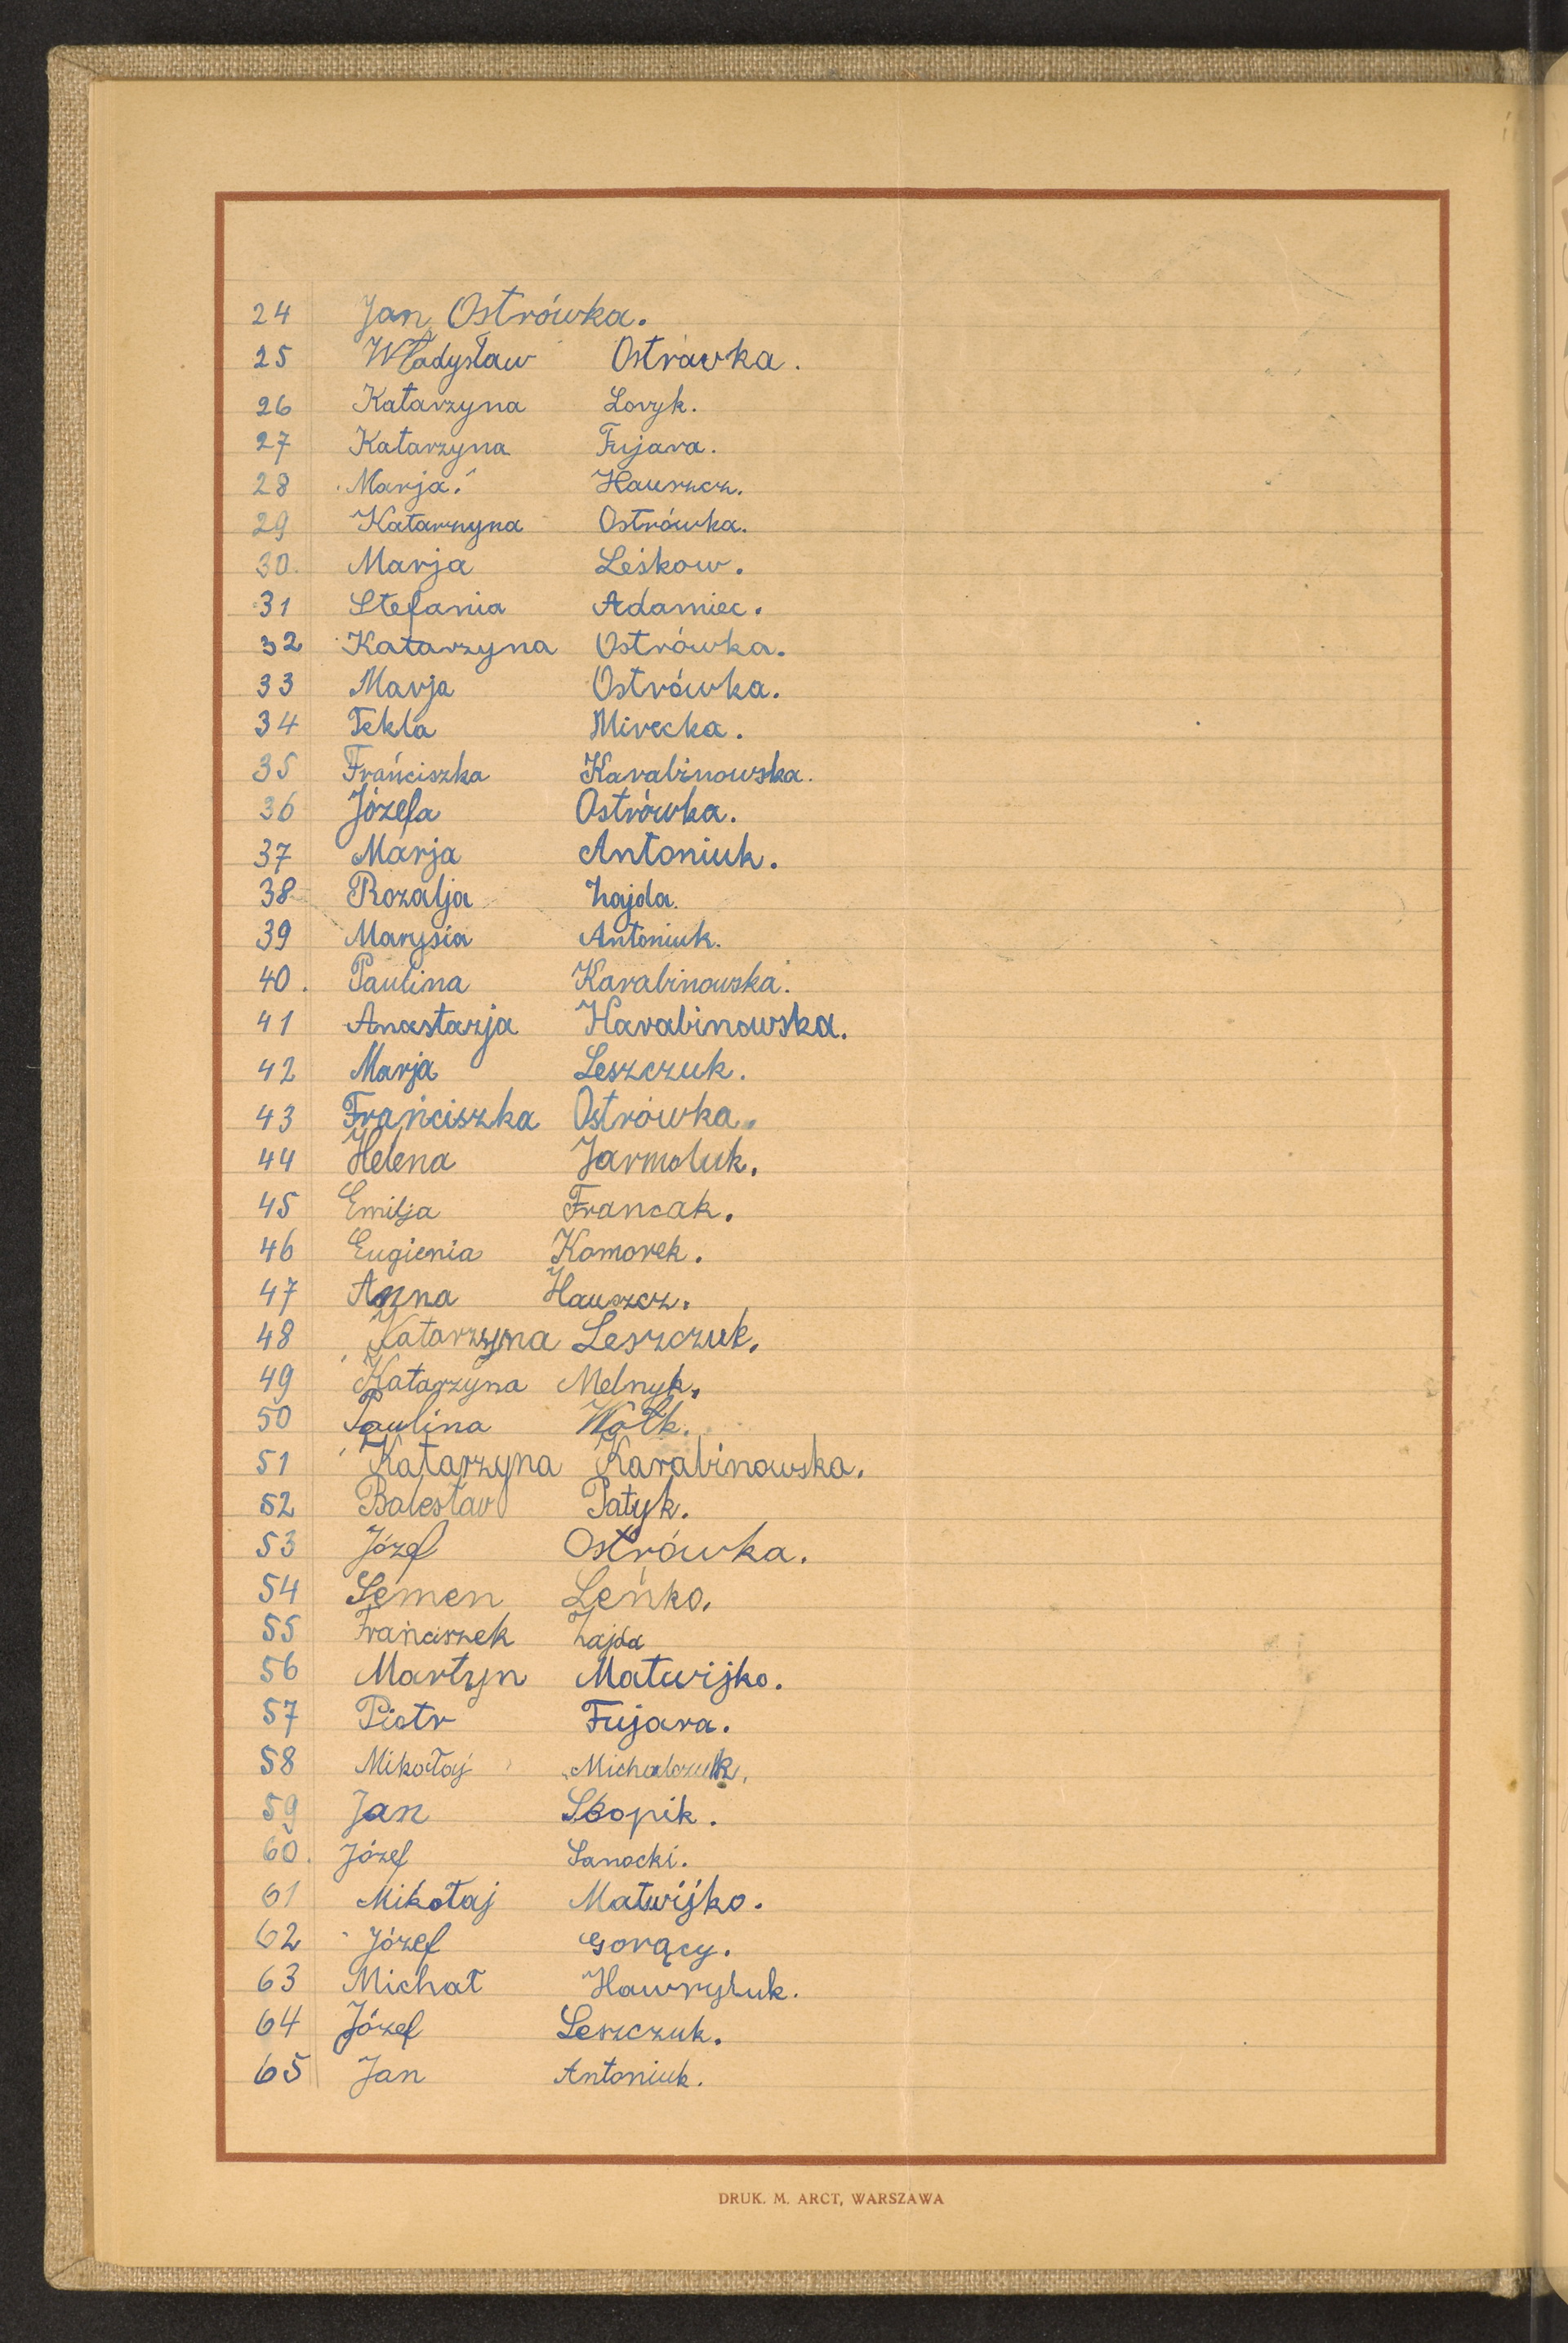 24 Jan Ostrówka.
25 Władysław Ostrawka.
26 Katarzyna Loryk.
27 Katarzyna Fujara.
28 Marja. Hauszcz.
29 Katarzyna Ostrówka.
30. Marja Leśkow.
31 Stefania Adamiec.
32 Katarzyna Ostrówka.
33 Marja Ostrówka.
34 Tekla Mirecka.
35 Frańciszka Karabinowska.
36 Józefa Ostrówka.
37 Marja Antoniuk.
38 Rozalja Zajda.
39 Marysia Antoniuk.
40. Paulina Karabinowska.
41 Anastazja Karabinowska.
42 Marja Leszczuk.
43 Frańciszka Ostrówka.
44 Helena Jarmoluk.
45 Emilja Francak.
46 Eugienia Komorek.
47 Anna Hauszcz.
48 Katarzyna Leszczuk.
49 Katarzyna Melnyk.
50 Paulina Wołk.
51 Katarzyna Karabinowska.
52 Bolesław Patyk.
53 Józef Ostrówka.
54 Semen Leńko.
55 Frańciszek Zajda
56 Martyn Matwijko.
57 Piotr Fujara.
58 Mikołaj Michalczuk.
59 Jan Skopik.
60. Józef Sanocki.
61 Mikołaj Matwijko.
62 Józef Gorący.
63 Michał Hawryluk.
64 Józef Leszczuk.
65 Jan Antoniuk.
DRUK. M. ARCT, WARSZAWA